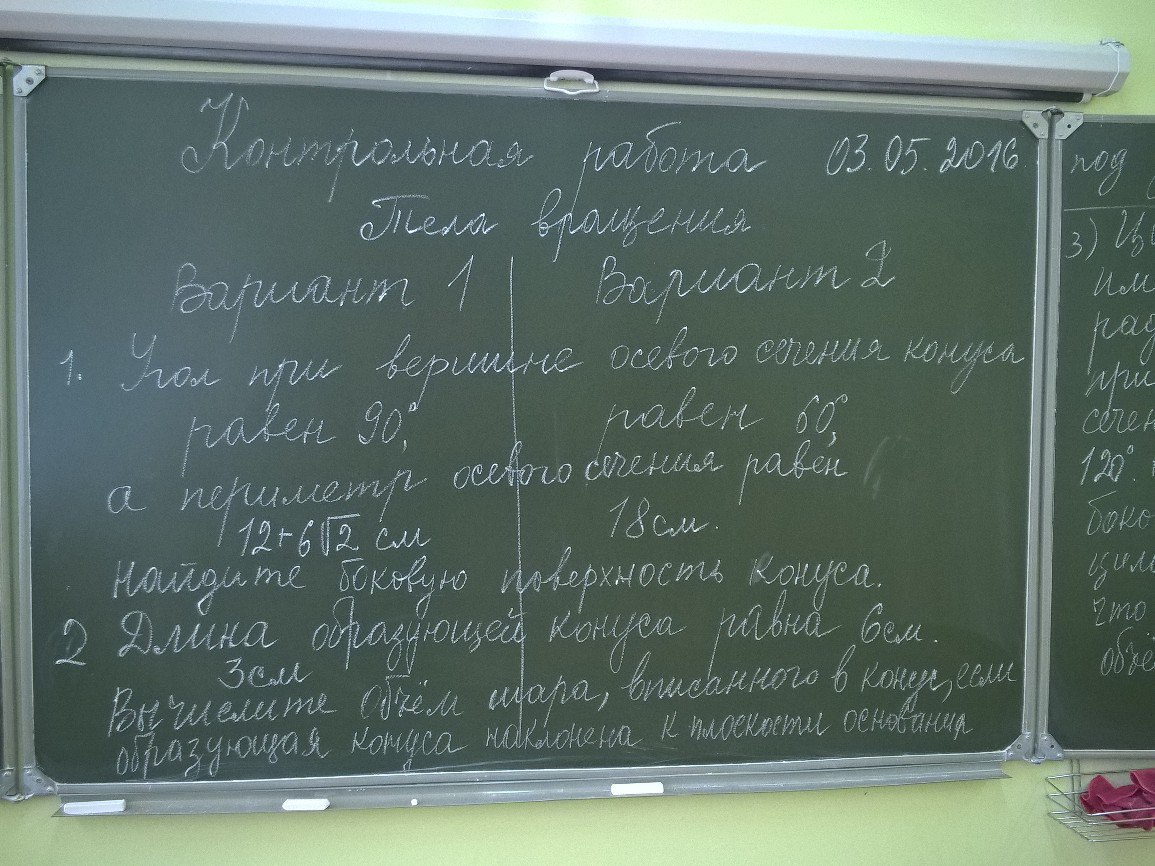 Контрольная работа 03.05.2016.
Тела вращения
Вариант 1 Вариант 2
1. Угол при вершине осевого сечения конуса
равен 90°, равен 60°,
а периметр осевого сечения равен
12+6√2 см 18 см.
Найдите боковую поверхность конуса.
2 Длина образующей конуса равна 6см.
3см
Вычислите объём шара, вписанного в конус, если
образующая конуса наклонена к плоскости основания
под
3)
при
120°.
что